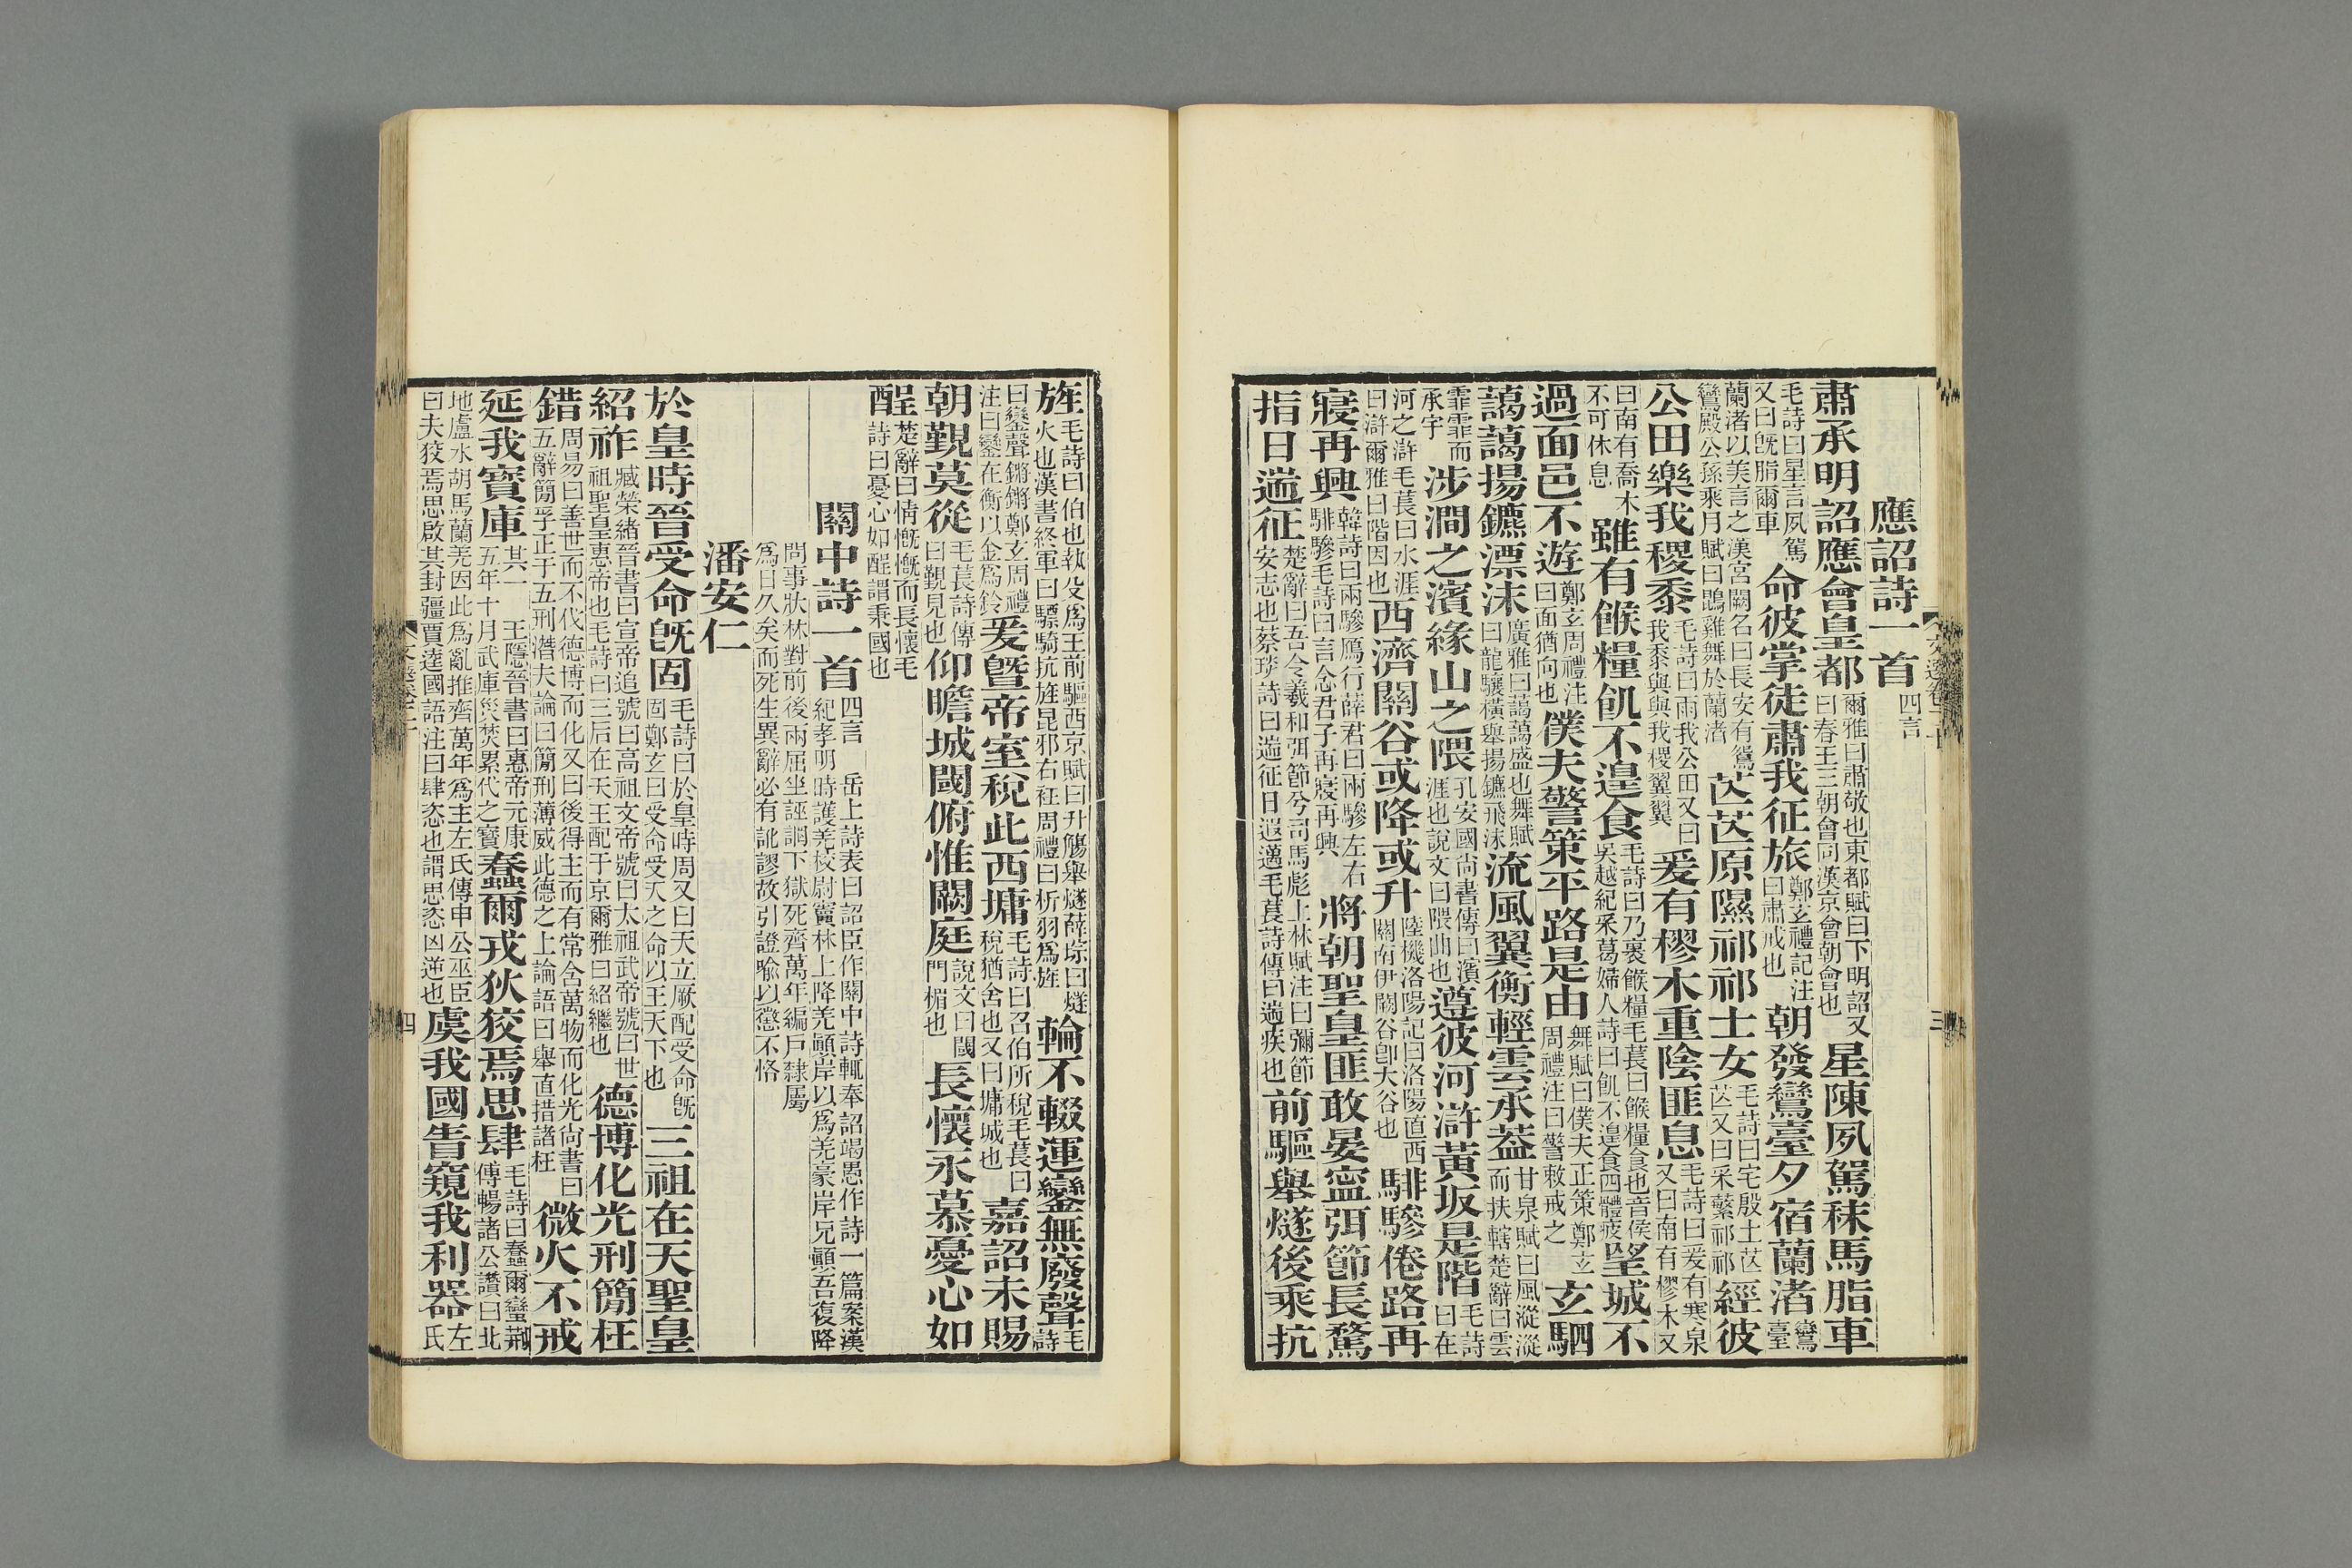 應詔詩一首四言
肅承明詔應會皇都爾雅曰肅敬也東都賦曰下明詔又曰春王三朝會同漢京會朝會也星陳夙駕秣馬脂車
毛詩曰星言夙駕又曰旣脂爾車命彼掌徒肅我征旅鄭玄禮記注曰肅戒也朝發鸞臺夕宿蘭渚鸞臺
蘭渚以美言之漢宮闕名曰長安有鴛鸞殿公孫乘月賦曰鵾雞舞於蘭渚芒芒原隰祁祁士女毛詩曰宅殷土芒芒又曰采蘩祁祁經彼
公田樂我稷黍毛詩曰雨我公田又曰我黍與與我稷翼翼爰有樛木重陰匪息毛詩曰爰有寒泉又曰南有樛木又
曰南有喬木不可休息雖有餱糧飢不遑食毛詩曰乃裹餱糧毛萇曰餱糧食也音侯吳越紀采葛婦人詩曰飢不遑食四體疲望城不
過面邑不遊鄭玄周禮注曰面猶向也僕夫警策平路是由舞賦曰僕夫正策鄭玄周禮注曰警敕戒之玄駟
藹藹揚鑣漂沫廣雅曰藹藹盛也舞賦曰龍驤橫舉揚鑣飛沫流風翼衡輕雲承蓋甘泉賦曰風漎漎而扶轄楚辭曰雲
霏霏而承宇涉澗之濱緣山之隈孔安國尚書傳曰濱涯也說文曰隈曲也遵彼河滸黃坂是階毛詩曰在
河之滸毛萇曰水涯曰滸爾雅曰階因也西濟關谷或降或升陸機洛陽記曰洛陽直西關南伊闕谷卽大谷也騑驂倦路再
寢再興韓詩曰兩驂鴈行薛君曰兩驂左右騑驂毛詩曰言念君子再寢再興將朝聖皇匪敢晏寧弭節長騖
指日遄征楚辭曰吾令羲和弭節兮司馬彪上林賦注曰彌節安志也蔡琰詩曰遄征日遐邁毛萇詩傳曰遄疾也前驅舉燧後乘抗
旌毛詩曰伯也執殳爲王前驅西京賦曰升觴舉燧薛綜曰燧火也漢書終軍曰驃騎抗旌昆邪右衽周禮曰析羽爲旌輪不輟運鑾無廢聲毛詩
曰鑾聲鏘鏘鄭玄周禮注曰鑾在衡以金爲鈴爰曁帝室稅此西墉毛詩曰召伯所稅毛萇曰稅猶舍也又曰墉城也嘉詔未賜
朝覲莫從毛萇詩傳曰覲見也仰瞻城閾俯惟闕庭說文曰閾門榍也長懷永慕憂心如
酲楚辭曰情慨慨而長懷毛詩曰憂心如酲謂秉國也
關中詩一首四言 岳上詩表曰詔臣作關中詩輒奉詔竭愚作詩一篇案漢紀孝明時護羌校尉竇林上降羌顚岸以爲羌豪岸兄顚吾復降
問事狀林對前後兩屈坐誣調下獄死齊萬年編戶隸屬爲日久矣而死生異辭必有詭謬故引證喩以懲不恪
潘安仁
於皇時晉受命旣固毛詩曰於皇時周又曰天立厥配受命旣固鄭玄曰受命受天之命以王天下也三祖在天聖皇
紹祚臧榮緒晉書曰宣帝追號曰高祖文帝號曰太祖武帝號曰世祖聖皇惠帝也毛詩曰三后在天王配于京爾雅曰紹繼也德博化光刑簡枉
錯周易曰善世而不伐德博而化又曰後得主而有常含萬物而化光尚書曰五辭簡孚正于五刑潛夫論曰簡刑薄威此德之上論語曰舉直措諸枉微火不戒
延我寶庫其一 王隱晉書曰惠帝元康五年十月武庫災焚累代之寶蠢爾戎狄狡焉思肆毛詩曰蠢爾蠻荆傅暢諸公讚曰北
地盧水胡馬蘭羌因此爲亂推齊萬年爲主左氏傳申公巫臣曰夫狡焉思啟其封疆賈逵國語注曰肆恣也謂思恣凶逆也虞我國眚窺我利器左氏
文選卷二十 三
四